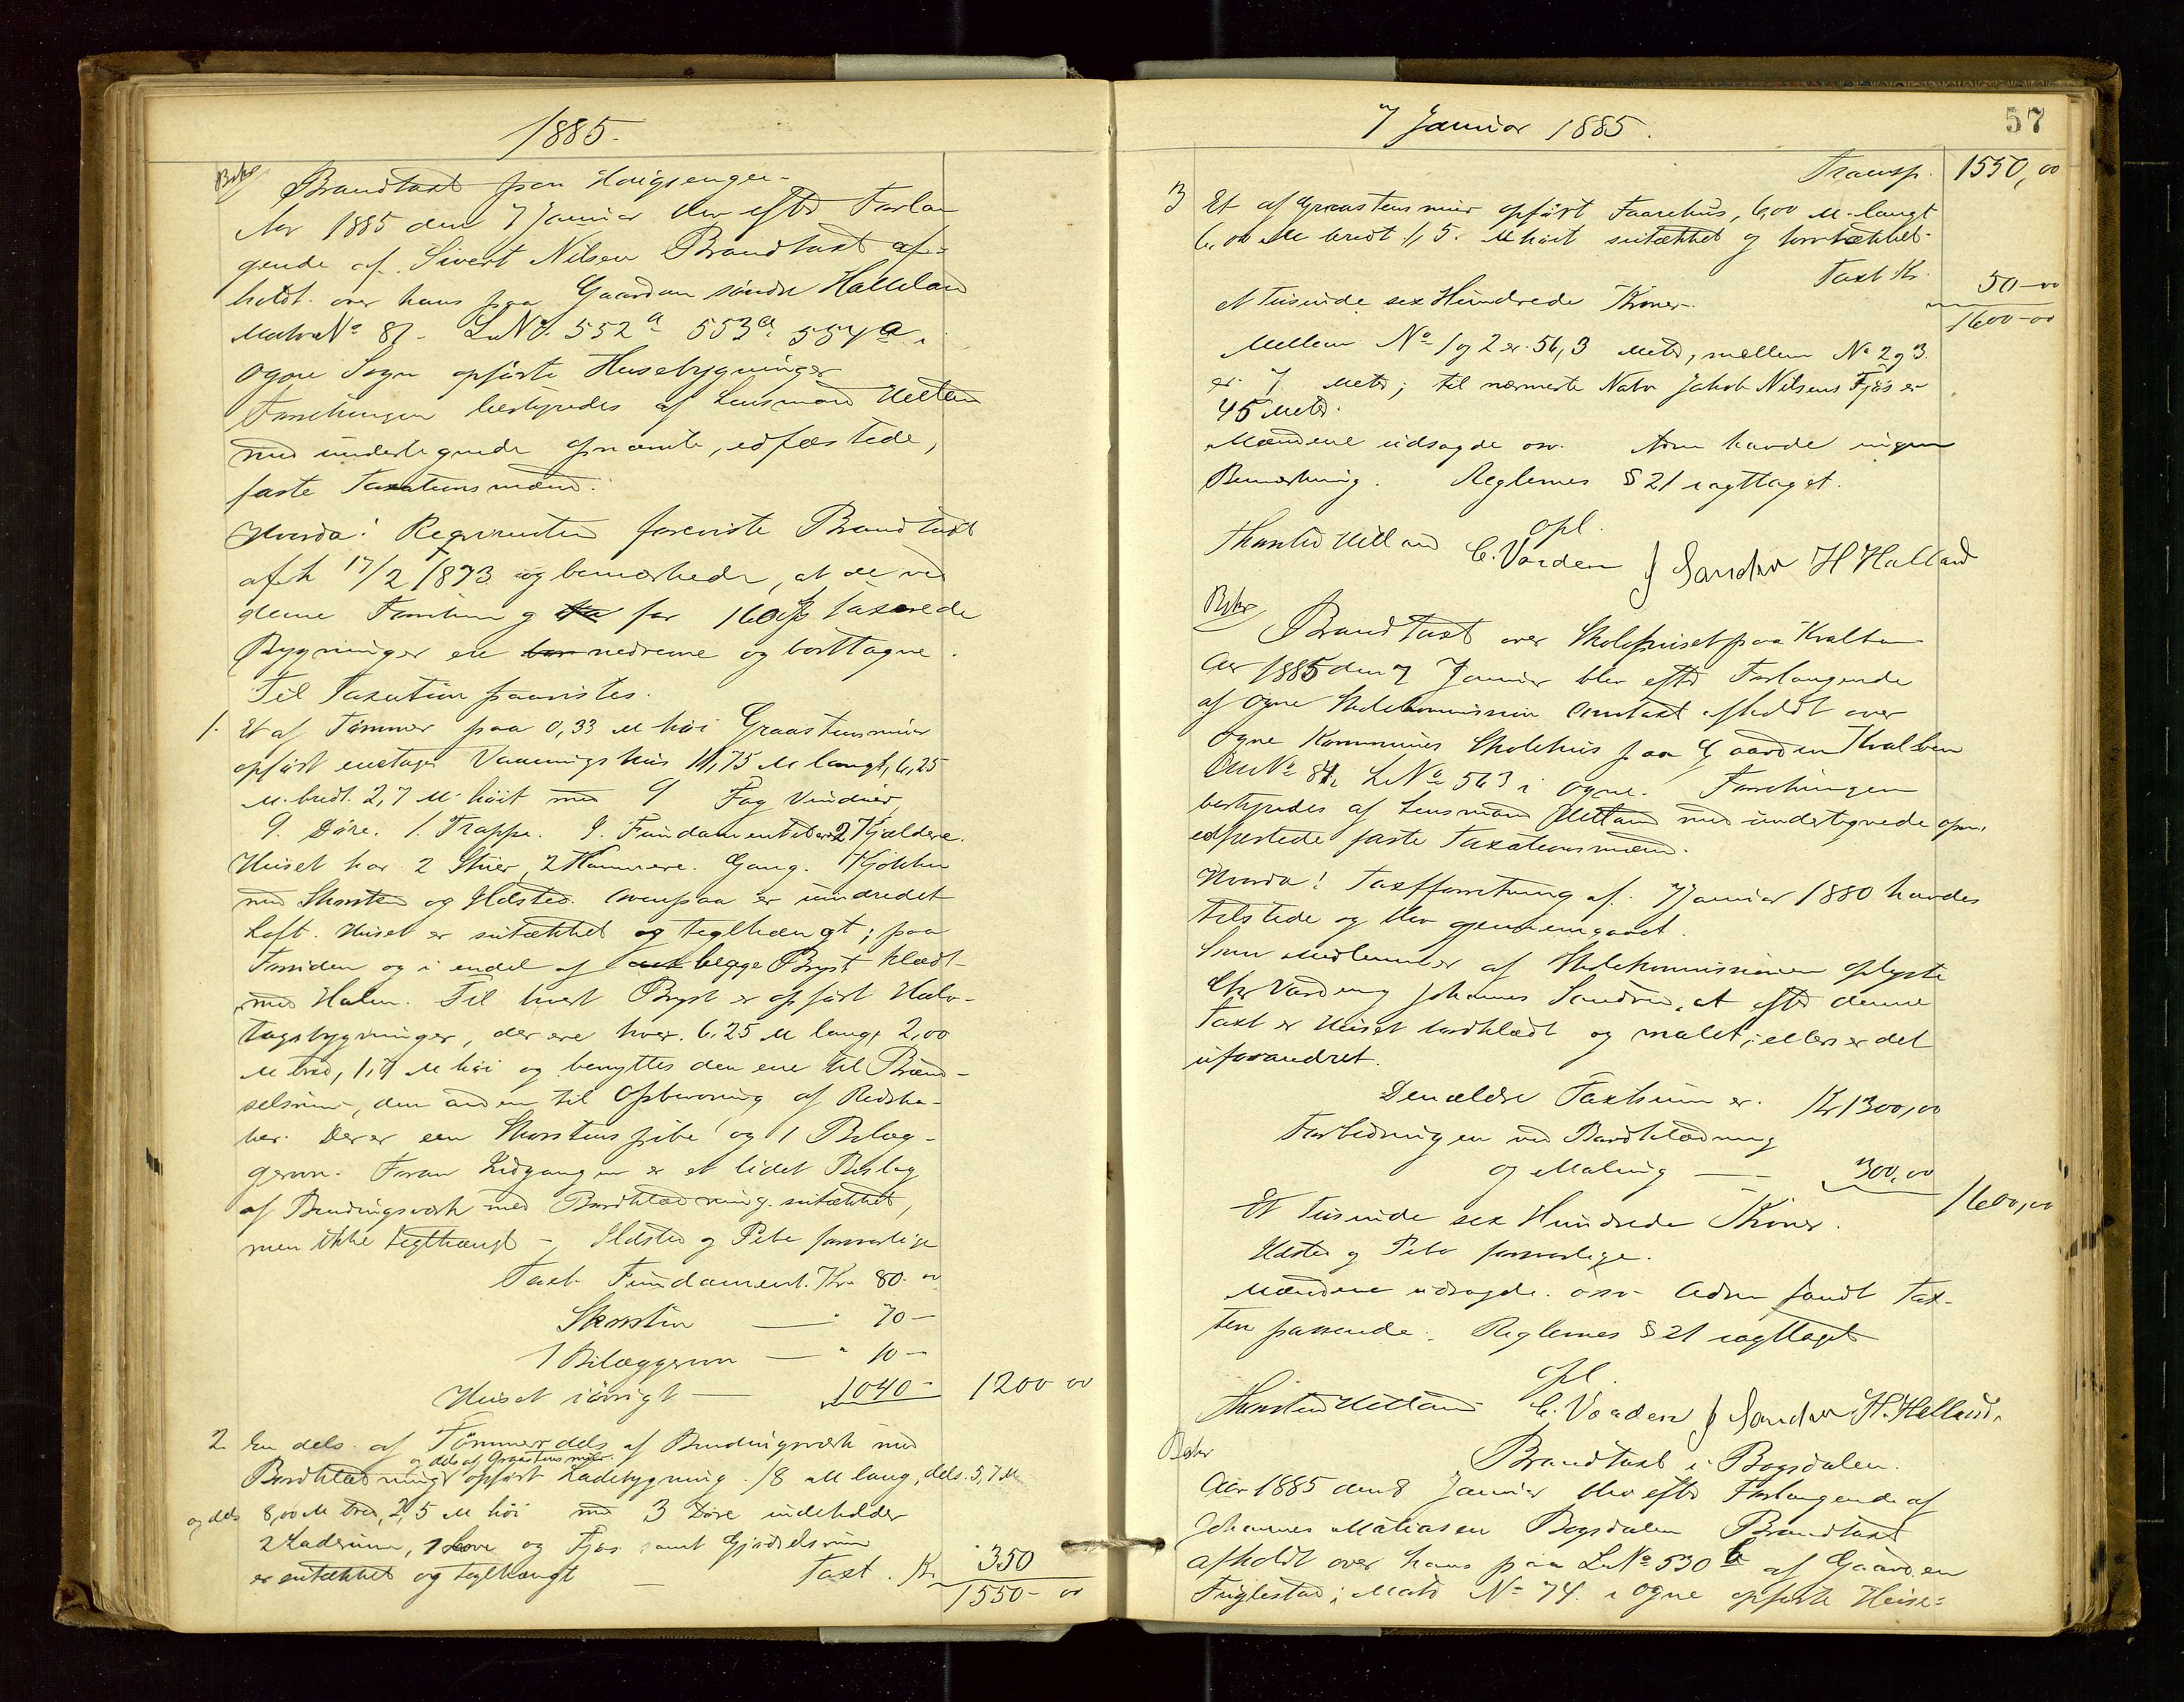 1885.
Brandtaxt paa Haugsengen
Aar 1885 den 7 Januar blev efter Forlan
gende af Sivert Nilsen Brandtaxt af-
holdt over hans paa Gaarden søndre Helleland
Matr No 81 - LNo 552a 553a 554a i
Ogne Sogn opførte Husebygninger
Forretningen bestyredes af Lensmand Hetland
med undertegnede opnævnte, edfæstede,
faste Taxationsmænd.
Hvorda! Rekvirenten foreviste Brandtaxt
afh 17/2 1873 og bemærkede, at de ved
denne Forretning for 160 taxerede
Bygninger ere nedrevne og borttagne.
Til Taxation paavistes.
1. Et af Tømmer paa 0,33 M høi Graastensmuur
opført enetages Vaaningshus 14,75 M langt, 6,25
M. bredt. 2,7 M høit med 9 Fag Vinduer,
9. Døre. 1. Trappe. 9. Fundamenter 2 Kjældere.
Huset har 2 Stuer, 2 Kammere. Gang. Kjøkken
med Skorsten og Ildsted. Ovenpaa er uindredet
Loft. Huset er sutækket og teglhængt; paa
Forsiden og i endel af begge Bryst klædt
med Heler. Til hvert Bryst er opført Halv-
tagsbygninger, der ere hver. 6,25 M lang, 2,00
M bred, 1,7 M høi og benyttes den ene til Brænd-
selsrum, den anden til Opbevaring af Redska-
ber. Der er een Skorstenspibe og 1 Bilæg-
gerovn. Foran Indgangen er et lidet Bislag
af Bindingsværk med Bordklædning. sutækket,
men ikke teglhængt - Ildsted og Pibe forsvarlige
Taxt Fundament. Kr 80-00
Skorsten — " 70 —
1 Bilæggerovn — " 10 —
Huset iøvrigt — 1040 - 1200 00
2 En dels af Tømmer dels af Bindingsværk med
og dels af Graastensmuur
Bordklædning opført Ladebygning. 18 M lang, dels 5,7 M
og dels 8,00 M bred, 2,5 M høi med 3 Døre indeholder
2 Laderum, 1 Love og Fjøs samt Gjødselsrum
er sutækket og teglhængt — Taxt. Kr 350
1550-00
7 Januar 1885.
57
Transp. 1550,00
3 Et af Graastensmuur opført Faarehus, 6,00 M. langt
6,00 M bredt 1,5. M høit sutækket og torvtækket
Taxt Kr. 50-00
et tusinde sex Hundrede Kroner. 1600-00
Mellem No 1 og 2 er 56,3 Meter, mellem No 2 og 3
er 7 Meter; til nærmeste Nabo Jakob Nilsens Fjøs er
45 Meter.
Mændene udsagde osv. Adm havde ingen
Bemærkning. Reglernes § 21 iagttaget.
opl.
Thorsten Hetland C. Varden J Sandve H Helland
Brandtaxt over Skolehuset paa Kvalben
Aar 1885 den 7 Januar blev efter Forlangende
af Ogne Skolekommission Omtaxt afholdt over
Ogne Kommunes Skolehus paa Gaarden Kvalben
MNo 84, LNo 563 i Ogne. Forretningen
bestyredes af Lensmand Hetland med undertegnede opn.
edfæstede faste Taxationsmænd.
Hvorda! Taxtforretning af 7 Januar 1880 havdes
tilstede og blev gjennemgaaet.
Som Medlemmer af Skolekommissionen oplyste
Chr Varden og Johannes Sandve, at efter denne
Taxt er Huset bordklædt og malet; ellers er det
uforandret.
Den ældre Taxtsum er. Kr 1300,00
Forbedringen ved Bordklædning
og Maling — 300,00
Et tusinde sex Hundrede Kroner. 1600,00
Ildsted og Pibe forsvarlige.
Mændene udsagde. osv. Adm fandt Tax-
ten passende. Reglernes § 21 iagttaget
opl.
Thorsten Hetland C. Varden J Sandve H. Helland.
Brandtaxt i Bogsdalen.
Aar 1885 den 8 Januar blev efter Forlangende af
Johannes Matiasen Bogsdalen Brandtaxt
afholdt over hans paa LNo 530 b af Gaarden
Fuglestad; Matr No 74. i Ogne opførte Huse-